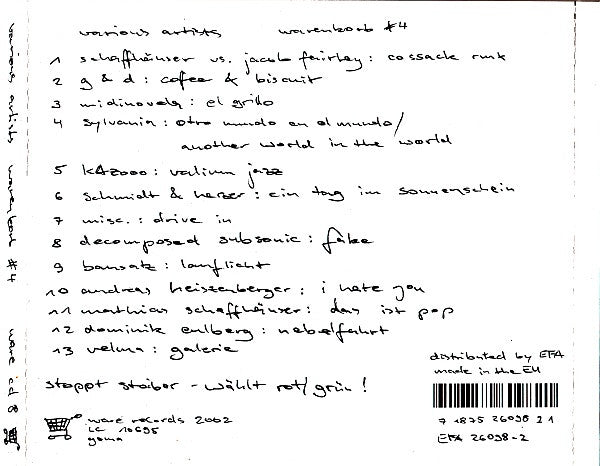 various artists warenkorb #4
various artists warenkorb #4 ware cd 8
1 schaffhäuser vs. jacob fairley : cossack rmk
2 g & d : cofee & biscuit
3 midinovela : el grillo
4 sylvania : otro mundo en el mundo /
another world in the world
5 k4zooo : valium jazz
6 schmidt & herer : ein tag im sonnenschein
7 misc. : drive in
8 decomposed subsonic : fake
9 bausatz : lauflicht
10 andreas heiszenberger : i hate you
11 mathias schaffhäuser : das ist pop
12 dominik eulberg : nebelfahrt
13 velma : galerie
stoppt stoiber - wählt rot/grün !
distributed by EFA
made in the EU
7 1875 26098 2 1
EFA 26098-2
ware records 2002
LC 10695
gema